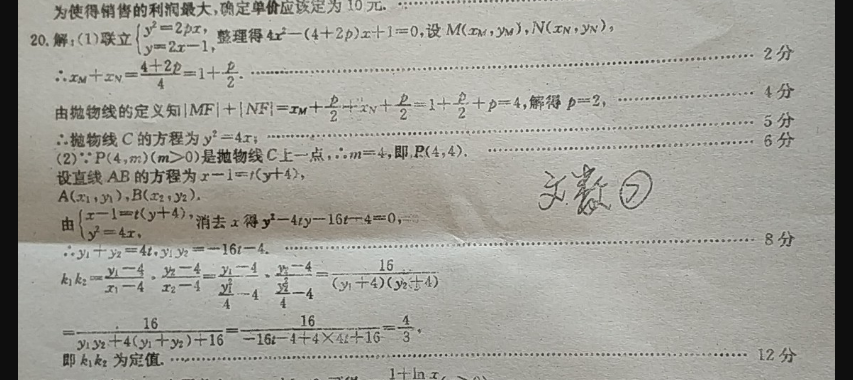 为使得销售的利润最大,确定单价应该定为 10 元.
20. 解:(1)联立{y²=2px, y=2x-1, 整理得 4x²-(4+2p)x+1=0,设 M(x_M,y_M),N(x_N,y_N),
∴x_M+x_N=(4+2p)/4=1+p/2. 2 分
由抛物线的定义知|MF|+|NF|=x_M+p/2+x_N+p/2=1+p/2+p=4,解得 p=2, 4 分
∴抛物线 C 的方程为 y²=4x; 5 分
(2)∵P(4,m)(m>0)是抛物线 C 上一点,∴m=4,即 P(4,4). 6 分
设直线 AB 的方程为 x-1=t(y+4),
A(x₁,y₁),B(x₂,y₂).
文数⑦
由{x-1=t(y+4), y²=4x, 消去 x 得 y²-4ty-16t-4=0,
∴y₁+y₂=4t,y₁y₂=-16t-4. 8 分
k₁k₂=(y₁-4)/(x₁-4)·(y₂-4)/(x₂-4)=(y₁-4)/(y₁²/4-4)·(y₂-4)/(y₂²/4-4)=16/((y₁+4)(y₂+4))
=16/(y₁y₂+4(y₁+y₂)+16)=16/(-16t-4+4×4t+16)=4/3,
即 k₁k₂ 为定值. 12 分
1+ln x